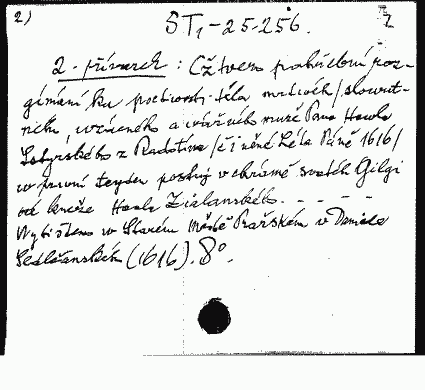 2) ST1-25-256.
2. přívazek : Cžtvero pohřební roz-
gímání ku poctivosti těla mrtvéh /slowut-
ného, wzáczného a wážného muže Pana Hawla
z Radotína /činěné Léta Páně 1616/
w první teyden postní w chrámě swatéh Gilgi
od kněze Hawla Žialanského. - - - -
Wytištěno w Starém Městě Pražském v Daniele
Sedlčanskéh (1616). 8°.